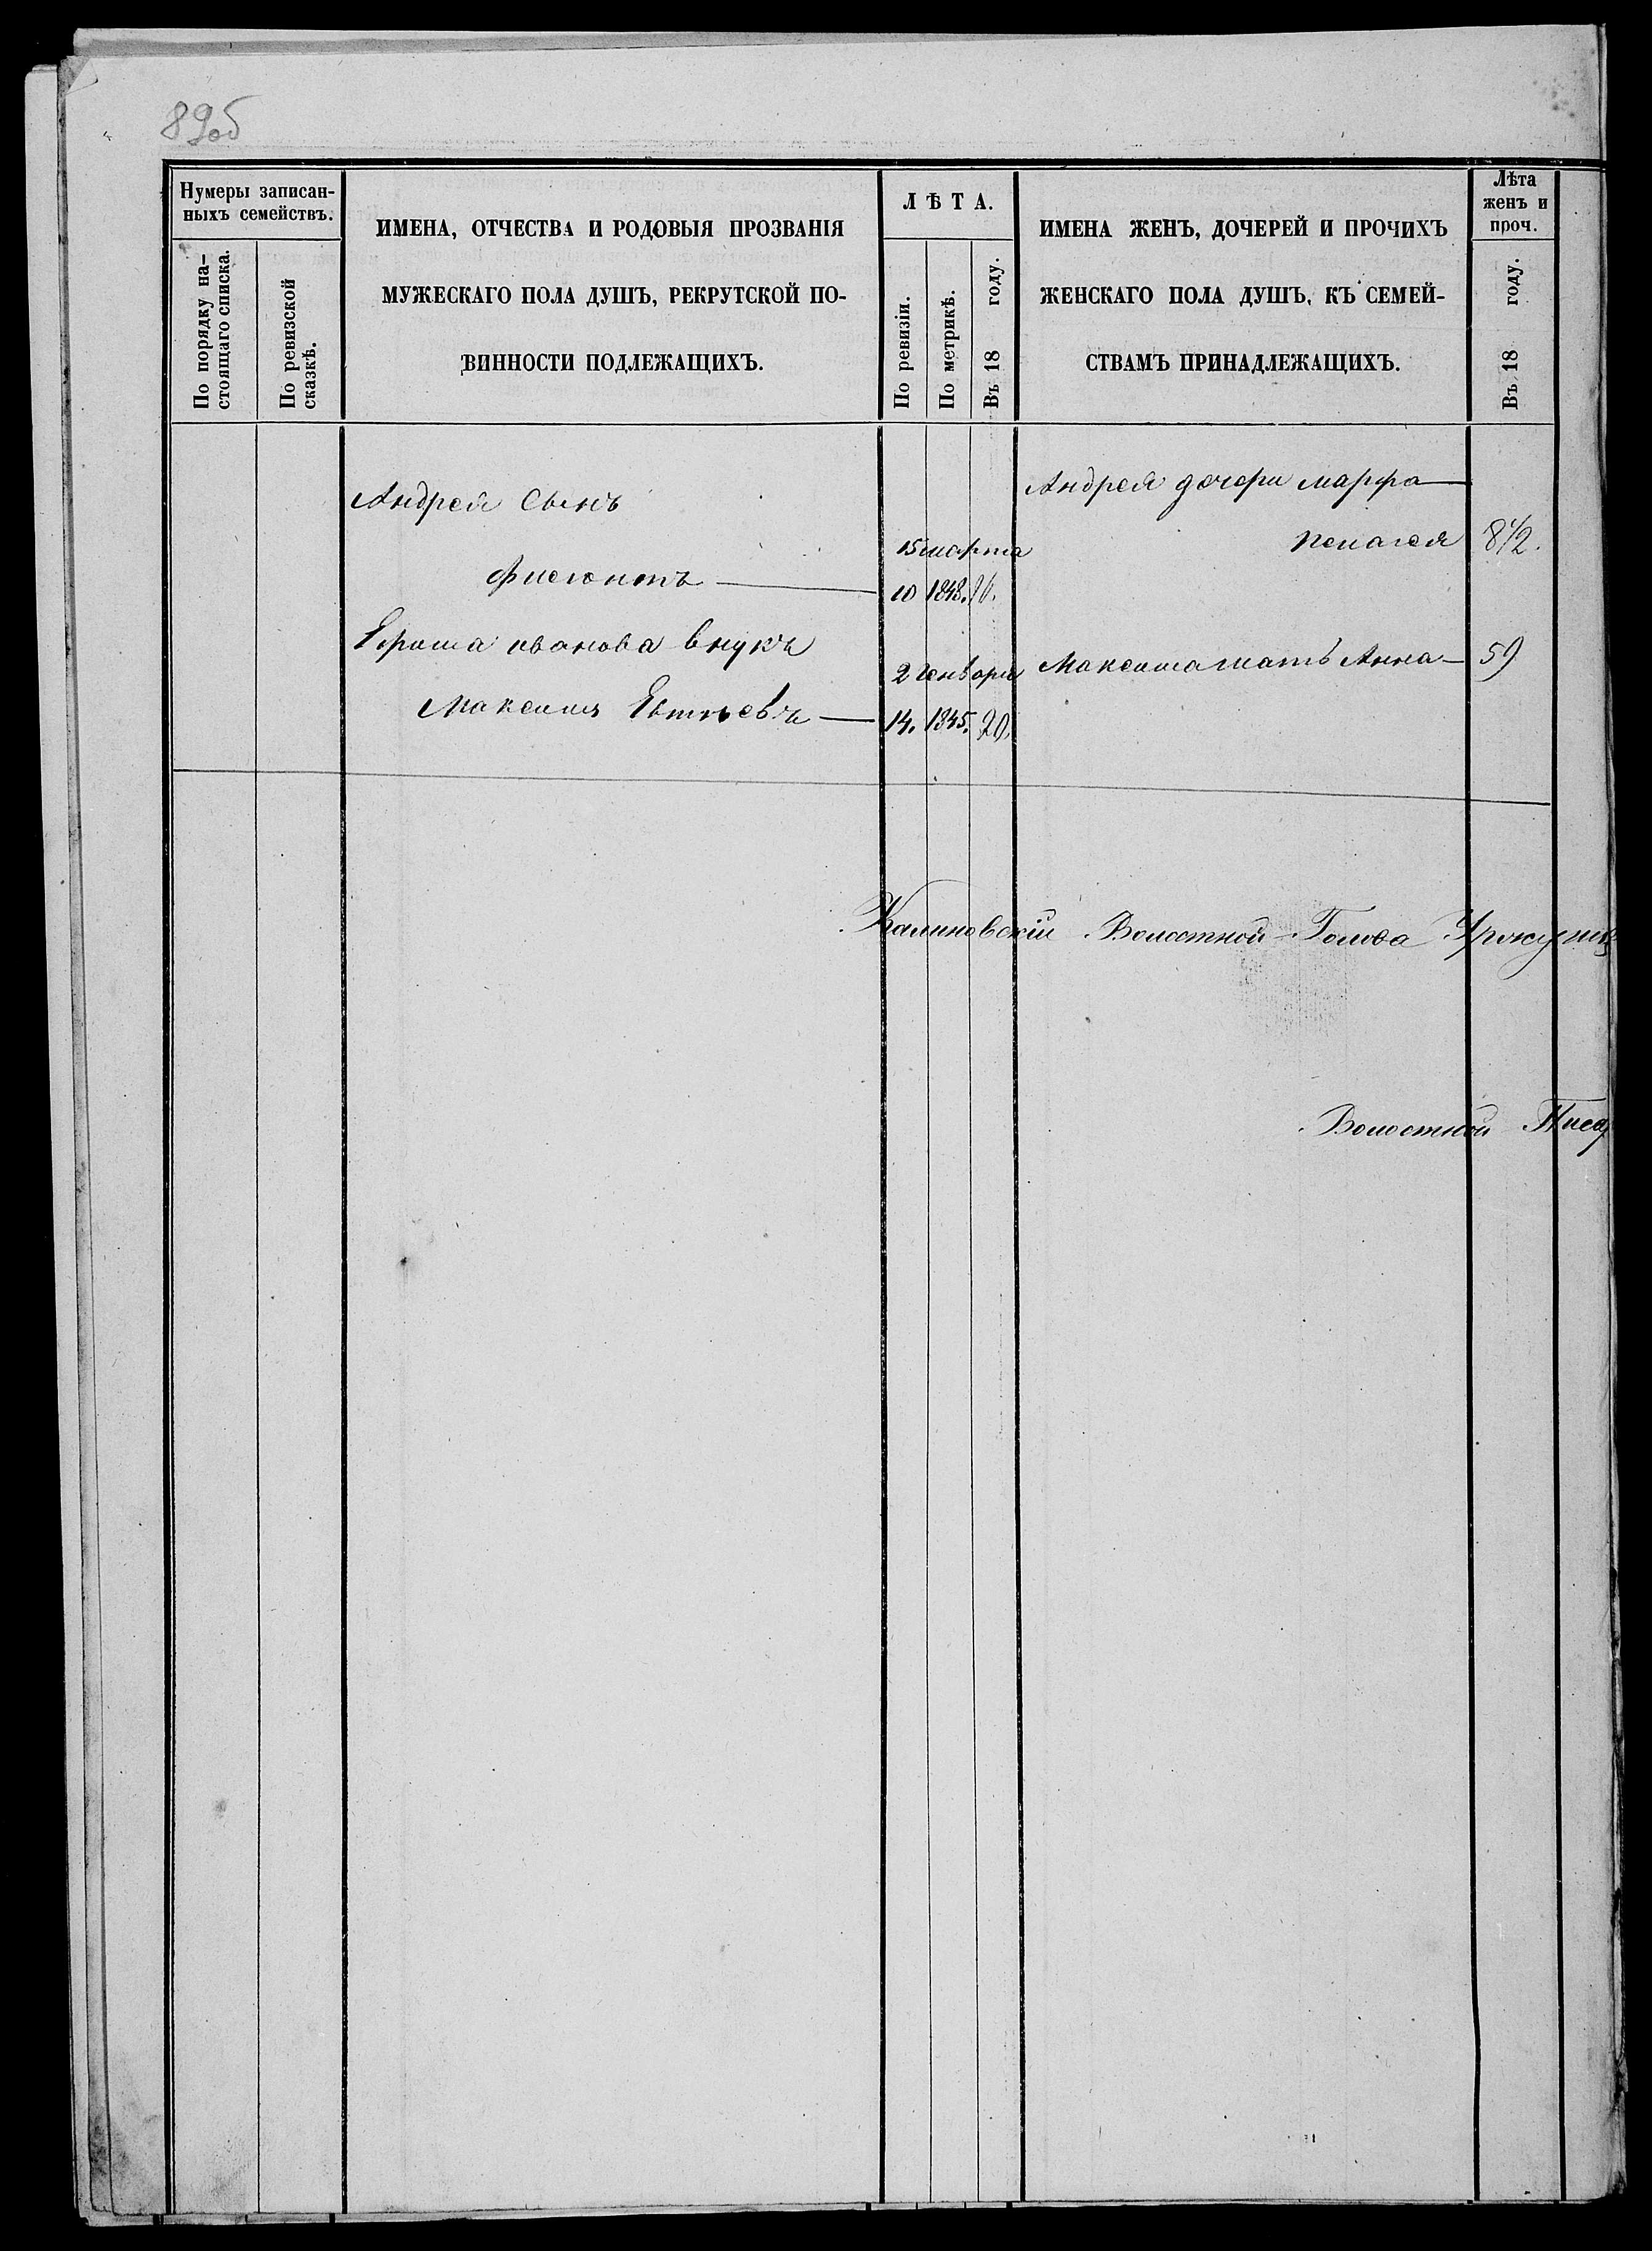 89об
Нумеры записан-
ныхъ семействъ.
По порядку на-
стоящаго списка.
По ревизской
сказкѣ.
ИМЕНА, ОТЧЕСТВА И РОДОВЫЯ ПРОЗВАНІЯ
МУЖЕСКАГО ПОЛА ДУШЪ, РЕКРУТСКОЙ ПО-
ВИННОСТИ ПОДЛЕЖАЩИХЪ.
ЛѢТА.
По ревизіи.
По метрикѣ.
Въ 18 году.
ИМЕНА ЖЕНЪ, ДОЧЕРЕЙ И ПРОЧИХЪ
ЖЕНСКАГО ПОЛА ДУШЪ, КЪ СЕМЕЙ-
СТВАМЪ ПРИНАДЛЕЖАЩИХЪ.
Лѣта
женъ и
проч.
Въ 18 году.
Андрея дочери марфа
Андрея Сынъ
пелагея 8 1/2.
15 марта
10 1848.
Ефима иванова внукъ
2 генваря
Максима мать Анна 59
Максимъ
14. 1845. 20.
Калиновскій Волостной Голова
Волостной Писар